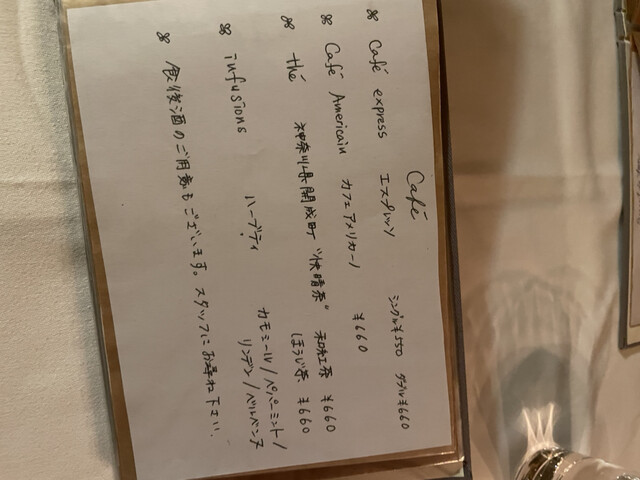 Café
Café express エスプレッソ シングル¥550 ダブル¥660
Café Americain カフェアメリカーノ ¥660
thé 神奈川県開成町 "快晴茶" 和紅茶 ¥660
ほうじ茶 ¥660
infusions ハーブティ カモミール/ペパーミント/
リンデン/ベルベンヌ
食後酒のご用意もございます。スタッフにお尋ね下さい。